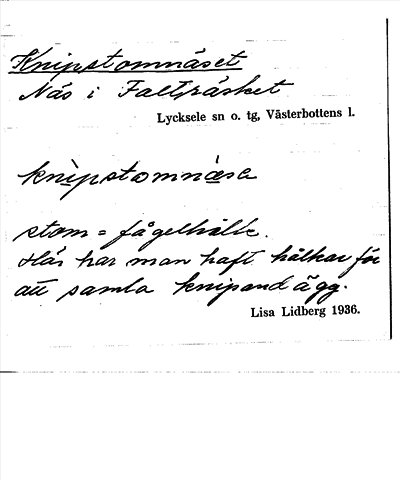 Knipstomnäset
Näs i Falträsket
Lycksele sn o. tg, Västerbottens l.
knìpstomnä̀sa
stom = fågelholk.
Här har man haft holkar för
att samla knipandägg.
Lisa Lidberg 1936.